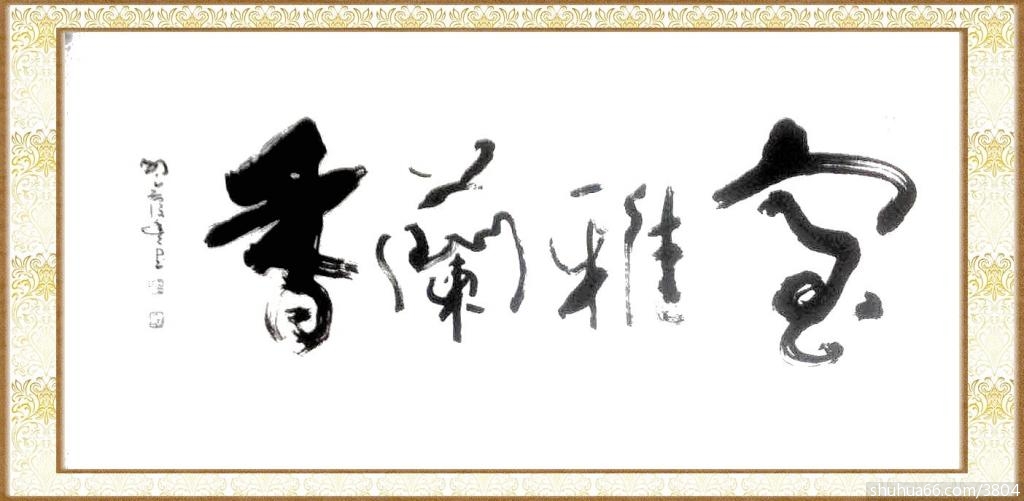 室雅蘭香
shuhua66.com/3804